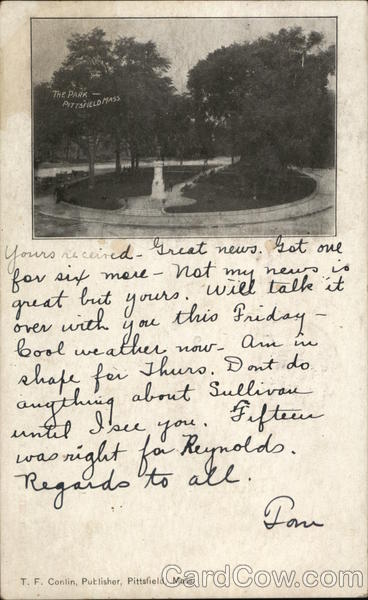 THE PARK —
PITTSFIELD MASS
Yours received - Great news. Got one
for six more - Not my news is
great but yours. Will talk it
over with you this Friday -
Cool weather now - Am in
shape for Thurs. Dont do
anything about Sullivan
until I see you. Fifteen
was right for Reynolds.
Regards to all.
Tom
T. F. Conlin, Publisher, Pittsfield, Mass.
CardCow.com